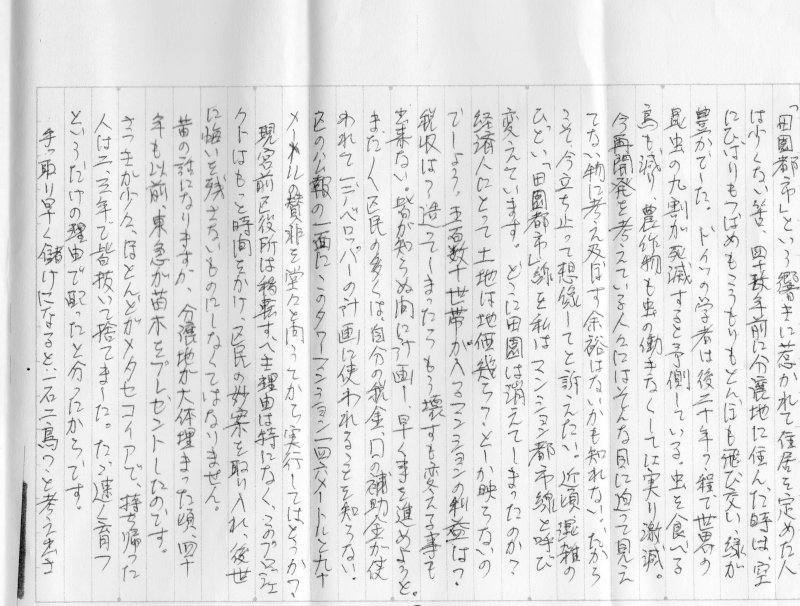 「田園都市」という響きに惹かれて住居を定めた人
は少くない筈、四十数年前に分譲地に住んだ時は空
にひばりもつばめもこうもりもとんぼも飛び交い緑が
豊かでした。ドイツの学者は後二十年(?)程で世界の
昆虫の九割が死滅すると予側している。虫を食べる
鳥も減り、農作物も虫の働きなくしては実り激減。
今再開発を考えている人々にはそんな目に迫って見え
てない物に考え及ぼす余裕はないかも知れない、だから
こそ、今立ち止って想像してと訴えたい。近頃混雑の
ひどい「田園都市」線を私はマンション都市線と呼び
変えています。どこに田園は消えてしまったのか?
経済人にとって土地は地価幾ら?としか映らないの
でしょう。五百数十世帯が入るマンションの利益は?
税収は?造ってしまったらもう壊すも変える事も
出来ない。皆が知らぬ間に計画し、早く事を進めようと。
まったく区民の多くは、自分の税金、国の補助金が使
われて一デベロッパーの計画に使われることを知らない。
区の公報の一面に、このタワーマンション一四六メートルと九十
メートルの賛非を堂々と問うてから実行してはどうか?
現宮前区役所は移転すべき理由は特になく、このプロジェ
クトはもっと時間をかけ、区民の妙案を取り入れ、後世
に悔いを残さないものにしなくてはなりません。
昔の話になりますが、分譲地が大体埋まった頃、四十
年も以前、東急が苗木をプレゼントしたのです。
さつきが少々、ほとんどがメタセコイアで、持ち帰った
人は二、三年で皆抜いて捨てました。ただ速く育つ
というだけの理由で配ったと分ったからです。
手っ取り早く儲けになると、一石二鳥?と考う